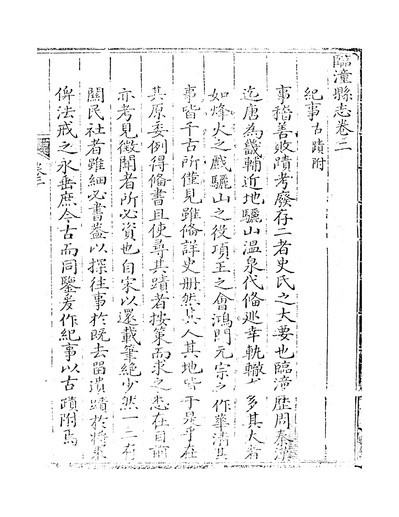 臨潼縣志卷二
紀事古蹟附
事稽善敗蹟考廢存二者史氏之大要也臨潼歷周秦漢
迄唐為畿輔近地驪山溫泉代偹廵幸軌轍 多其大者
如烽火之戲驪山之役項王之會鴻門元宗之作華清其
事皆千古所僅見雖偹詳史册然 人其地 于是乎在
其原委例得偹書且使尋其蹟者按策而求之悉在目前
亦考見徵聞者所必資也自宋以還載筆絶少然一二有
關民社者雖細必書蓋以探徃事於既去留遺蹟於將來
俾法戒之永垂庶今古而同鑒爰作紀事以古蹟附焉